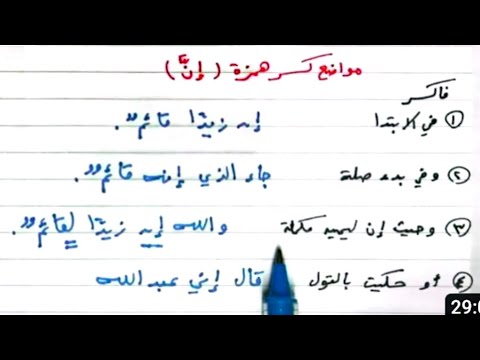 مواضع كسر همزة (إنَّ)
فاكسر
① في الابتدا إن زيدًا قائم".
② وفي بدء صلة جاء الذي إنه قائم".
③ وحيث إن ليمين مكملة والله إن زيدًا لقائم".
④ أو حكيت بالقول قال إني عبد الله
29:0